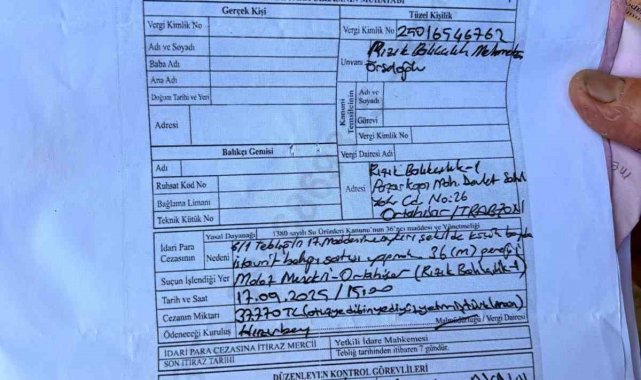 Gerçek Kişi
Tüzel Kişilik
Vergi Kimlik No
Vergi Kimlik No 25016546762
Adı ve Soyadı
Baba Adı
Ana Adı
Doğum Tarihi ve Yeri
Unvanı Rızık Balıkçılık
Adresi
Kanuni Temsilcinin
Adı ve Soyadı
Görevi
Vergi Kimlik No
Balıkçı Gemisi
Vergi Dairesi Adı
Adı
Ruhsat Kod No
Bağlama Limanı
Teknik Kütük No
Adresi Rızık Balıkçılık-1
Pazarkapı Mah. Devlet Sahil
Yolu Cd. No:26
Ortahisar/TRABZON
İdari Para Cezasının
Yasal Dayanağı 1380 sayılı Su Ürünleri Kanunu'nun 36'ncı maddesi ve Yönetmeliği
Nedeni 6/1 Tebliğin 17. Maddesine aykırı şekilde
balığı satışı yapmak 36 (m)
Suçun İşlendiği Yer Ortahisar (Rızık Balıkçılık-1)
Tarih ve Saat 17.09.2025 / 15.00
Cezanın Miktarı 37770 TL
Ödeneceği Kuruluş Malmüdürlüğü / Vergi Dairesi
İDARİ PARA CEZASINA İTİRAZ MERCİİ Yetkili İdare Mahkemesi
SON İTİRAZ TARİHİ Tebliğ tarihinden itibaren 7 gündür.
DÜZENLEYEN KONTROL GÖREVLİLERİ